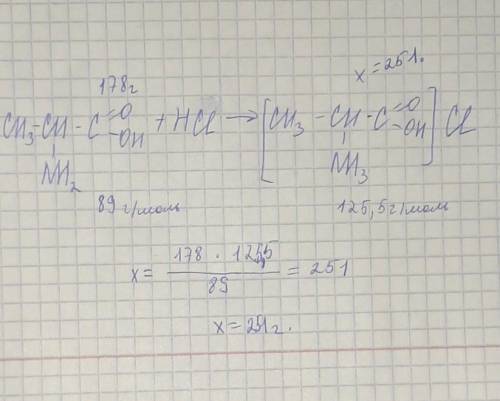 178г x = 251.
CH₃-CH-C=O OH + HCl → [CH₃-CH-C=O OH] Cl
NH₂ NH₃
89 г/моль 125,5 г/моль
x = 178 · 125,5 / 89 = 251
x = 251 г.